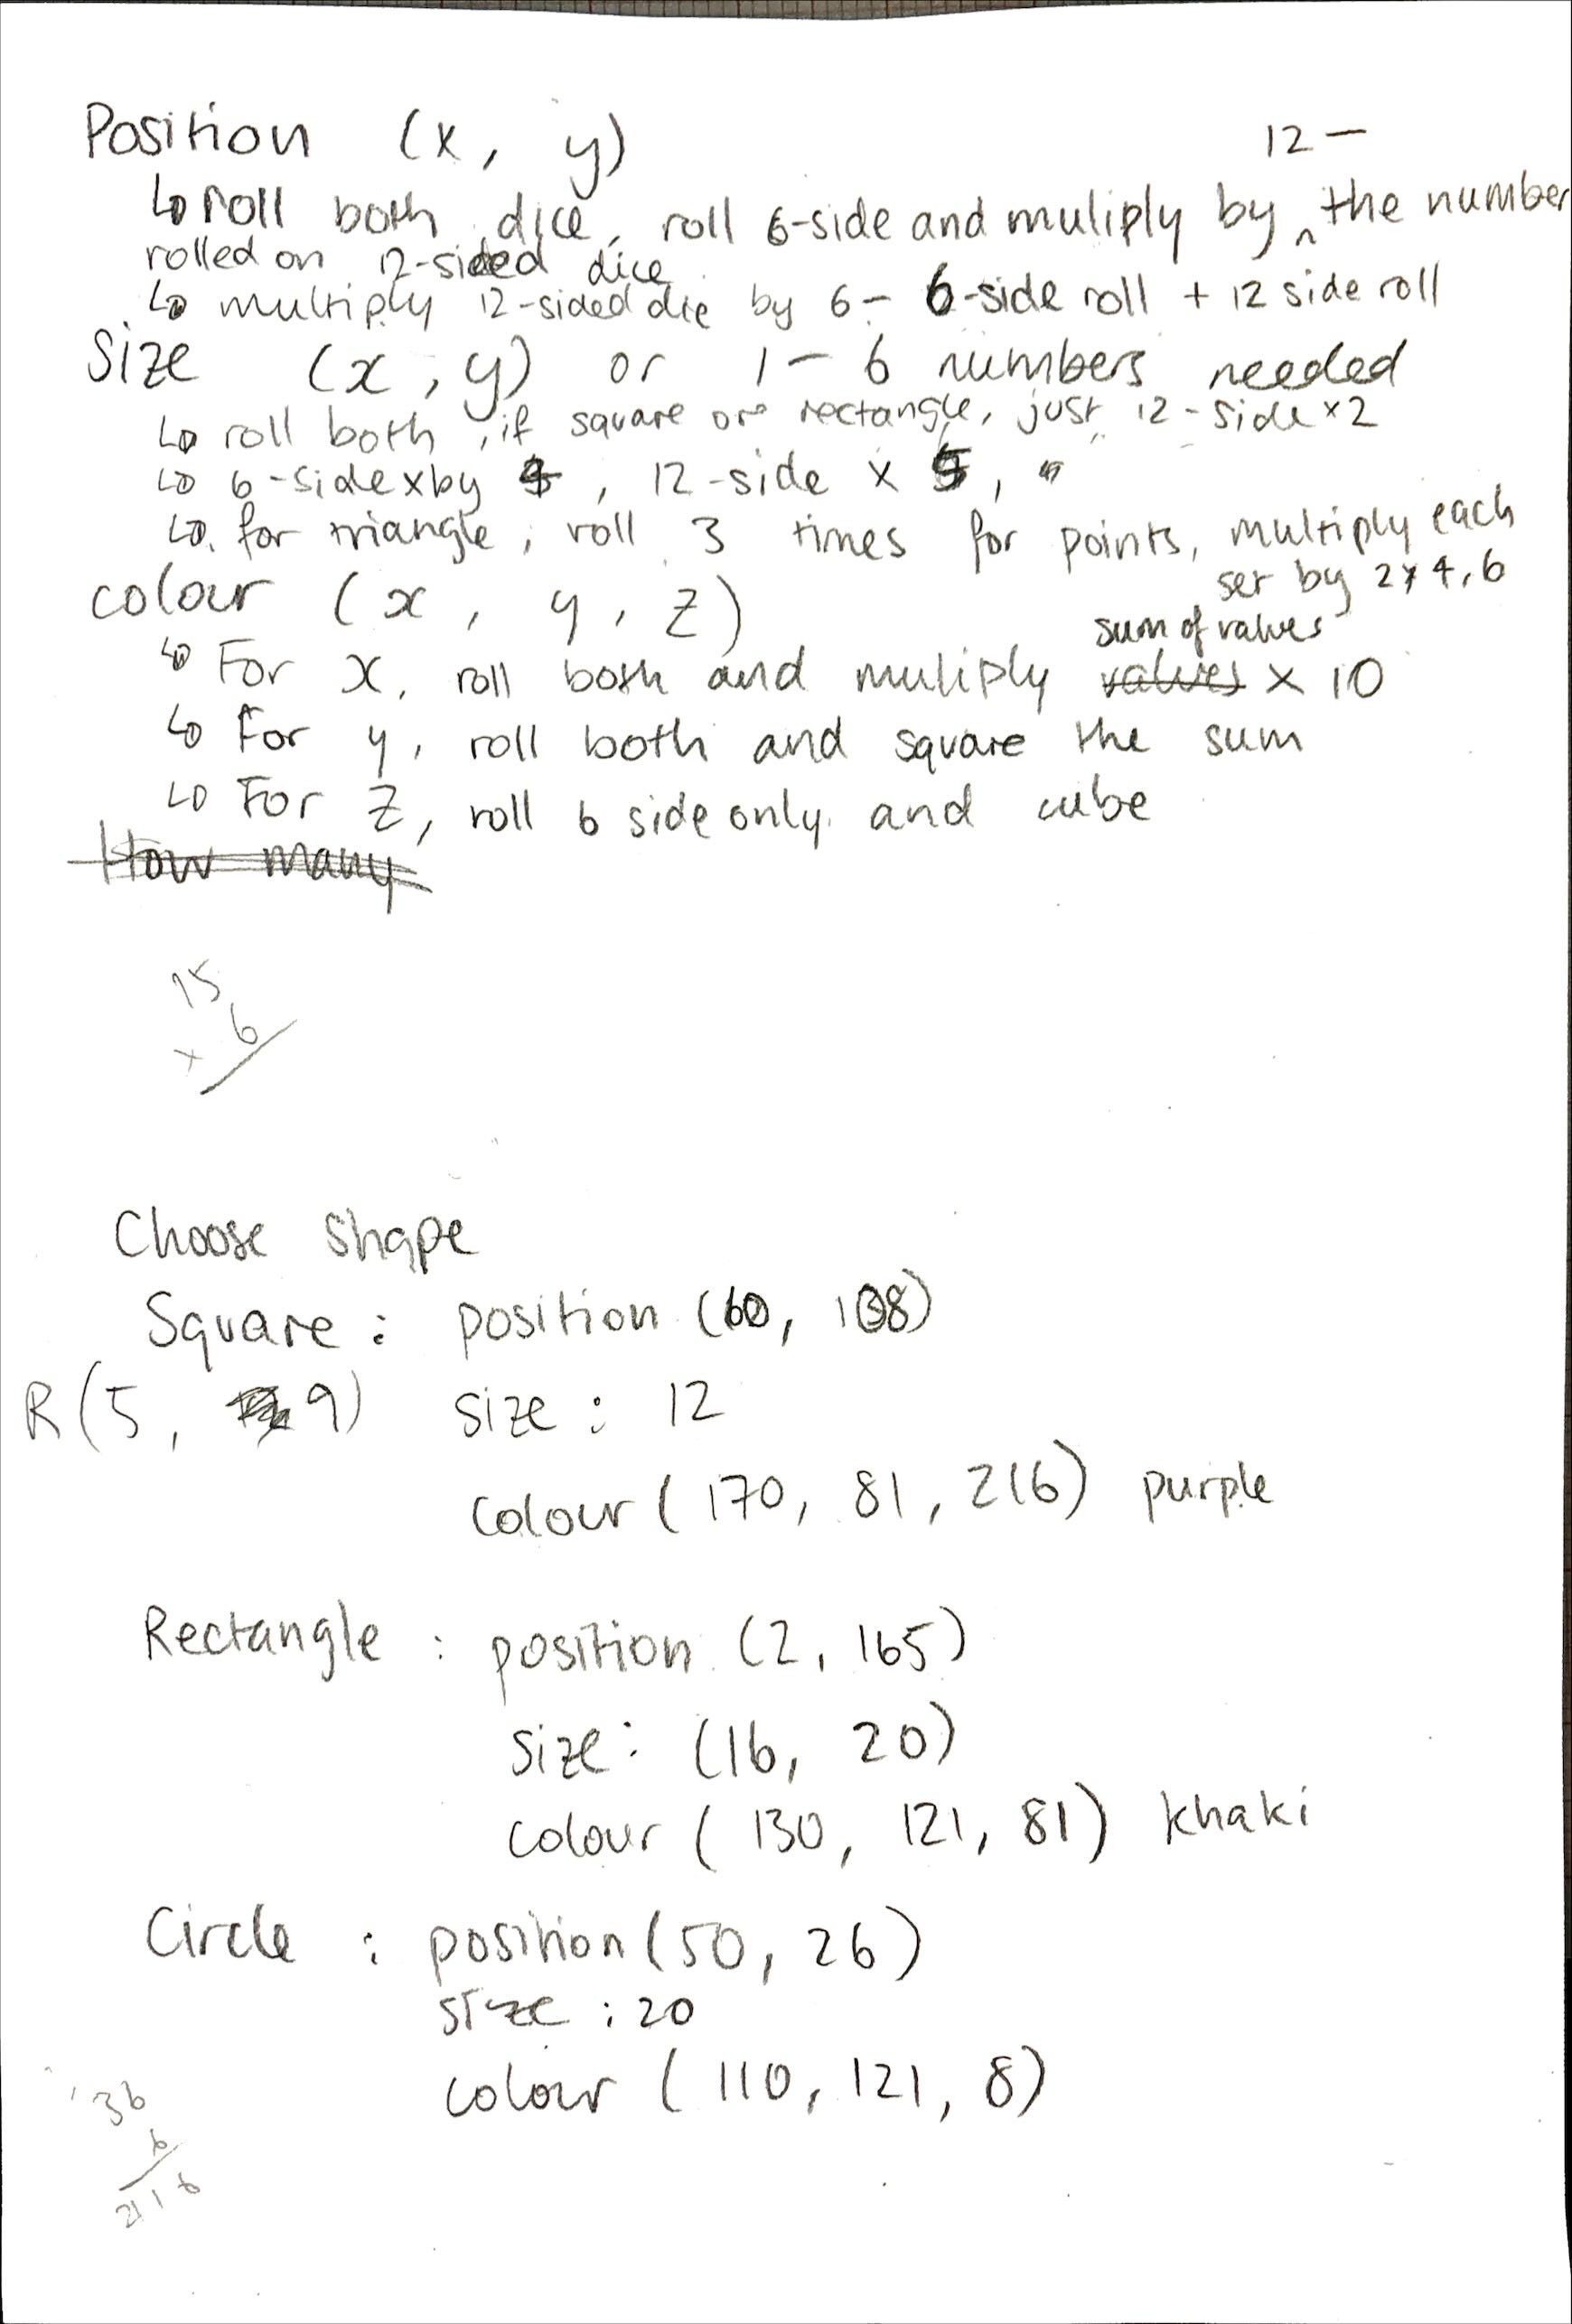 Position (x, y)
12 –
↳ roll both dice, roll 6-side and muliply by ^ the number
rolled on 12-sided dice
↳ multiply 12-sided die by 6 – 6-side roll + 12 side roll
Size (x, y) or 1 – 6 numbers needed
↳ roll both, if square or rectangle, just 12-side x2
↳ 6-side x by , 12-side x 5, "
↳ for triangle, roll 3 times for points, multiply each
set by 2, 4, 6
colour (x, y, z)
sum of values
↳ For x, roll both and muliply values x 10
↳ For y, roll both and square the sum
↳ For z, roll 6 side only and cube
How many
15
x 6
Choose shape
Square : position (60, 108)
R(5, 9) size : 12
colour (170, 81, 216) purple
Rectangle : position (2, 165)
size : (16, 20)
colour (130, 121, 81) khaki
Circle : position (50, 26)
size : 20
colour (110, 121, 8)
36
6
216